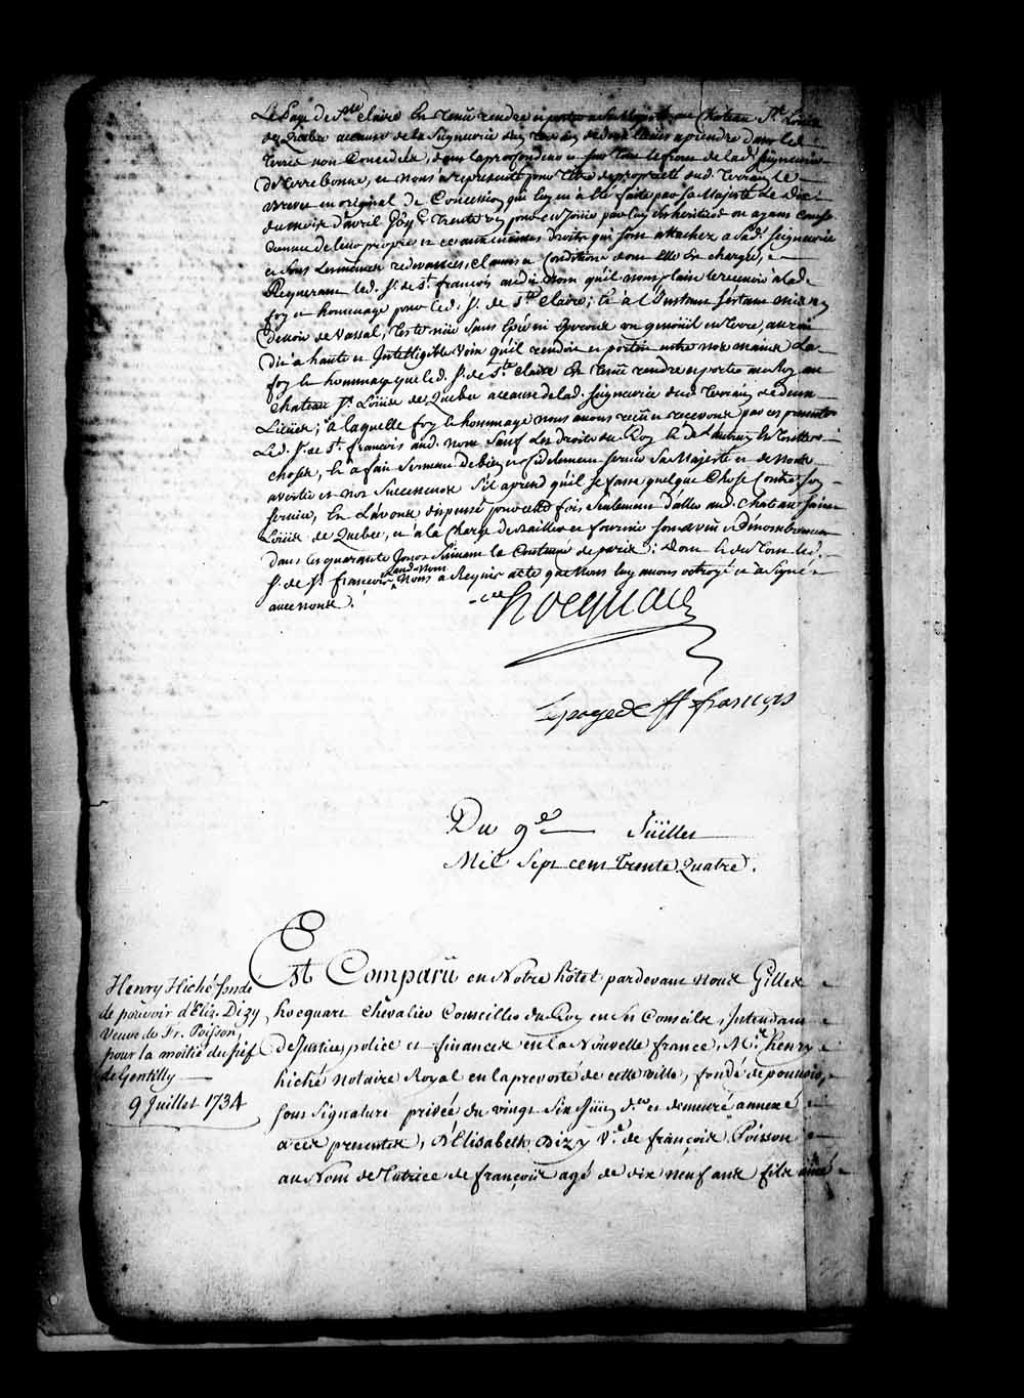 LePage de Ste. Claire Est Tenü rendre et porter au Chateau St. Loüis
de Quebec acause de la Seigneurie deux Lieües a prendre dans led.
Terres non Concedées, dans la profondeur et sur Tout le front de lad. Seigneurie
de Terrebonne, et Nous a representé pour Titre de proprieté dud. Terrain le
Brevet en original de Concession qui luy en a été faite par sa Majesté le Dix
du mois d'avril Trente Un pour en Joüir par luy ses heritiers ou ayans Cause
Comme de leur propre et ce aux mêmes Droits qui sont attachez a sad. Seigneurie
et sous Les mêmes redevances, Clauses et Conditions dont Elle Est chargée, et
Requerant led. Sr. de St. francois aud. Nom qu'il nous plaise le recevoir a lad.
foy et hommage pour led. Sr. de Ste. Claire; Et à l'Instant s'étant mis en
devoir de Vassal, Teste nüe Sans Epée ni Eperons un genoüil en Terre, auroit
dit a haute et Intelligible Voix qu'il rendoit et portoit entre nos mains La
foy Et hommage que led. Sr. de Ste. Claire Est Tenü rendre et porter au Roy au
Chateau St. Loüis de Quebec acause de lad. Seigneurie dud. Terrain de deux
Lieües; à laquelle foy Et hommage nous avons reçû et recevons par ces presentes
Led. Sr. de St. francois aud. nom Sauf Les droits du Roy Et de L'autruy En Toutes
choses, Et a fait Serment de bien et fidelement Servir Sa Majesté et de Nous
avertir et nos Successeurs S'il aprend qu'il se fasse quelque Chose Contre son
Service, Et L'avons dispensé pour cette fois Seulement d'aller aud. Chateau Saint
Loüis de Quebec, et à la Charge de bailler et fournir son aveü et Dénombrement
dans les quarante Jours Suivant la Coutume de paris; Dont Et du Tout led.
Sr. de St. francois aud. Nom Nous a Requis acte que Nous luy avons octroyé et a Signé
avec nous.
Hocquart
Lepage de St françois
Du 9e. Juillet
Mil Sept cent Trente Quatre.
Est Comparü en Notre hôtel pardevant nous Gilles
hocquart Chevalier Conseiller du Roy en ses Conseils, Intendant
de Justice, police et finances en la Nouvelle france, Me. Henry
hiché Notaire Royal en la prevosté de cette ville, fondé de pouvoir,
sous Signature privée du vingt Six Juin d.er et demeuré annexé
a ces presentes, d'Elisabeth Dizy Ve. de françois Poisson
au Nom de Tutrice de françois agé de dix neuf ans fils ainé
Henry Hiché fondé
de pouvoir d'Eliz. Dizy
Veuve de Fr. Poisson,
pour la moitié du fief
de Gentilly
9 Juillet 1734